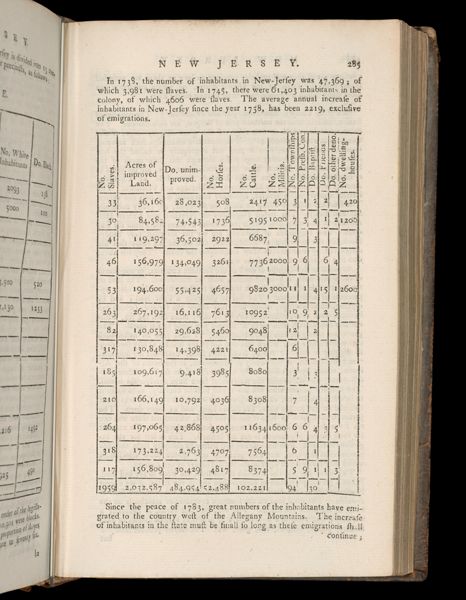 NEW JERSEY. 285
In 1738, the number of inhabitants in New-Jerſey was 47,369; of
which 3,981 were ſlaves. In 1745, there were 61,403 inhabitants in the
colony, of which 4606 were ſlaves. The average annual increaſe of
inhabitants in New-Jerſey ſince the year 1738, has been 2219, excluſive
of emigrations.
No. Slaves. Acres of improved Land. Do. unimproved. No. Horſes. No. Cattle. No. Militia. No. Townſhips No. Preſb. Con. Do. Baptiſt Do. Friends Do. other deno. No. dwelling-houſes.
33 36,160 28,023 508 2417 450 3 1 2 2 420
30 84,582 74,543 1736 5195 1000 7 3 4 1 2 1200
41 119,297 36,302 2922 6687 9 3
46 156,979 134,049 3261 7736 2000 9 6 6 4
53 194,600 55,425 4657 9820 3000 11 1 4 15 1 2600
263 267,192 16,116 7613 10952 10 9 2 2 5
82 140,055 29,628 5460 9048 12 2
317 130,848 14,398 4221 6400 6
185 109,617 9,418 3985 8080 3 3
210 166,149 10,792 4036 8308 7 4
264 197,065 42,868 4505 11634 1600 6 6 4 3 5
318 173,224 2,763 4707 7564 6 1
117 156,809 30,429 4817 8374 5 9 1 1 3
1959 2,032,587 484,954 52,488 102,221 94 30
Since the peace of 1783, great numbers of the inhabitants have emi-
grated to the country weſt of the Allegany Mountains. The increaſe
of inhabitants in the ſtate muſt be ſmall ſo long as theſe emigrations ſhall
continue;